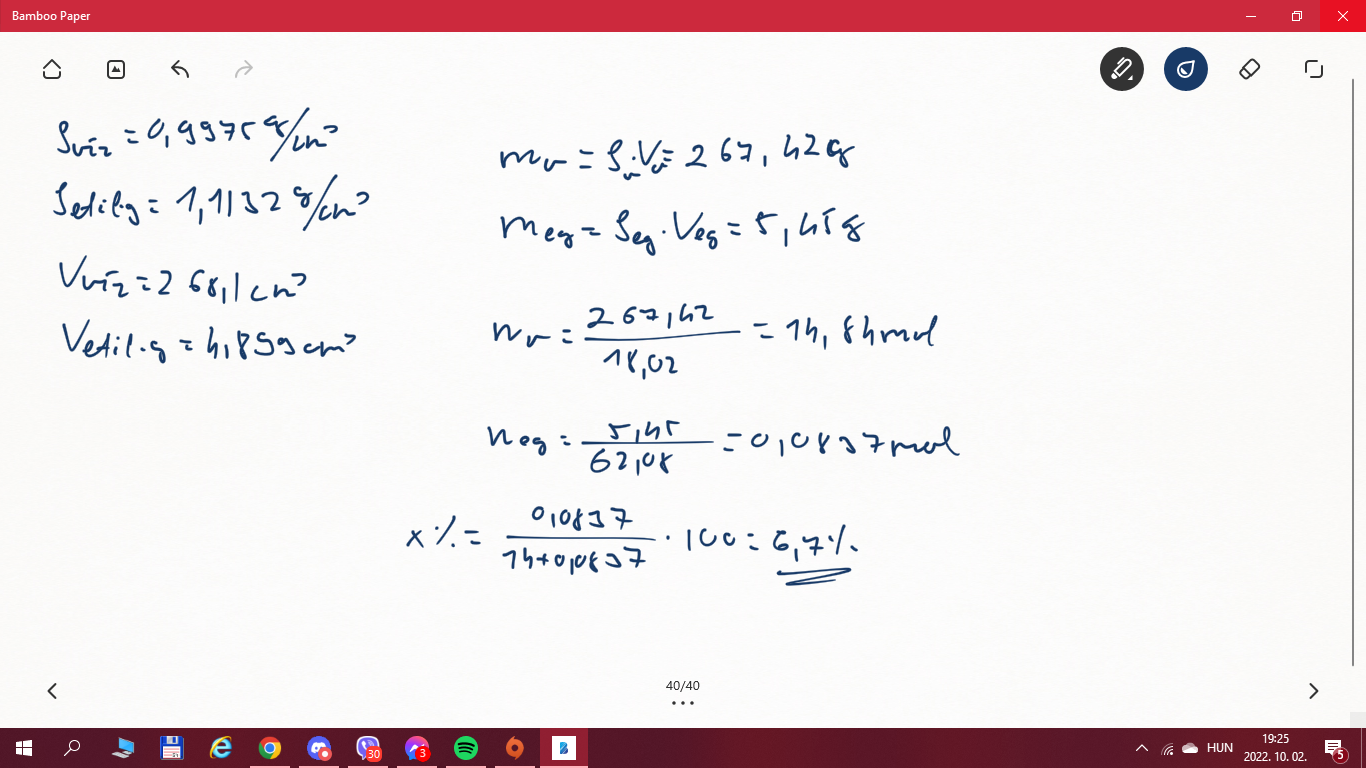 Bamboo Paper
ρvíz = 0,9975 g/cm³
ρetil.g = 1,1132 g/cm³
Vvíz = 268,1 cm³
Vetil.g = 4,899 cm³
mv = ρv·Vv = 267,42 g
meg = ρeg·Veg = 5,45 g
nv = 267,42/18,02 = 14,84 mol
neg = 5,45/62,08 = 0,0837 mol
x% = 0,0837/14+0,0837 · 100 = 6,7%
40/40
30
3
HUN
19:25
2022. 10. 02.
5